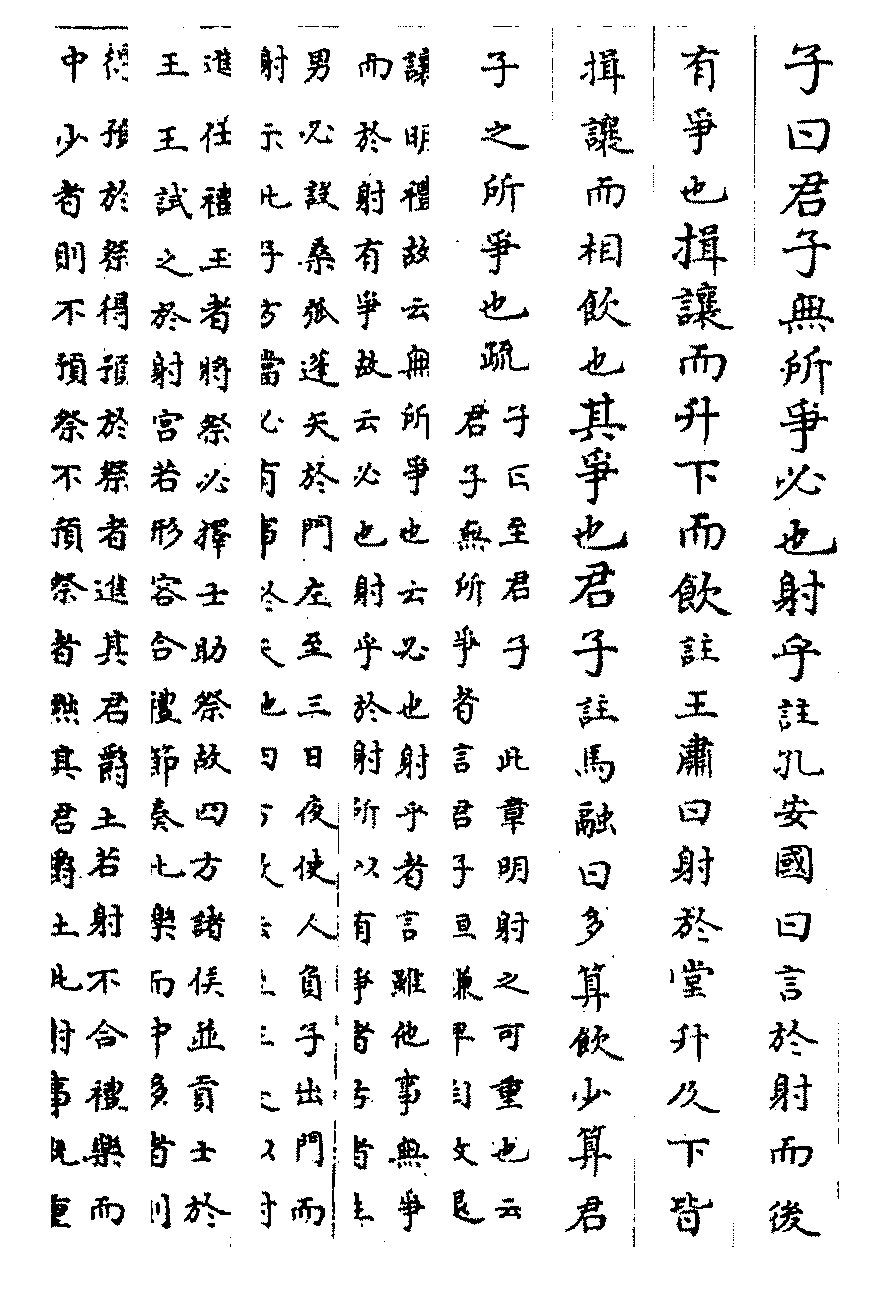 子曰君子無所爭必也射乎註孔安國曰言於射而後
有爭也揖讓而升下而飲註王肅曰射於堂升及下皆
揖讓而相飲也其爭也君子註馬融曰多算飲少算君
子之所爭也疏
子曰至君子 此章明射之可重也云
君子無所爭者言君子亘謙卑自牧退
讓明禮故云無所爭也云必也射乎者言雖他事無爭
而於射有爭故云必也射乎於射所以有爭者古者生
男必設桑弧蓬矢於門左至三日夜使人負子出門而
射示此子方當必有事於天地四方故云至 以射
進任禮王者將祭必擇士助祭故四方諸侯並貢士於
王王試之於射宮若形容合禮節奏比樂而中多者則
得預於祭得預於祭者進其君爵土若射不合禮樂而
中少者則不預祭不預祭者黜其君爵土此射事既重